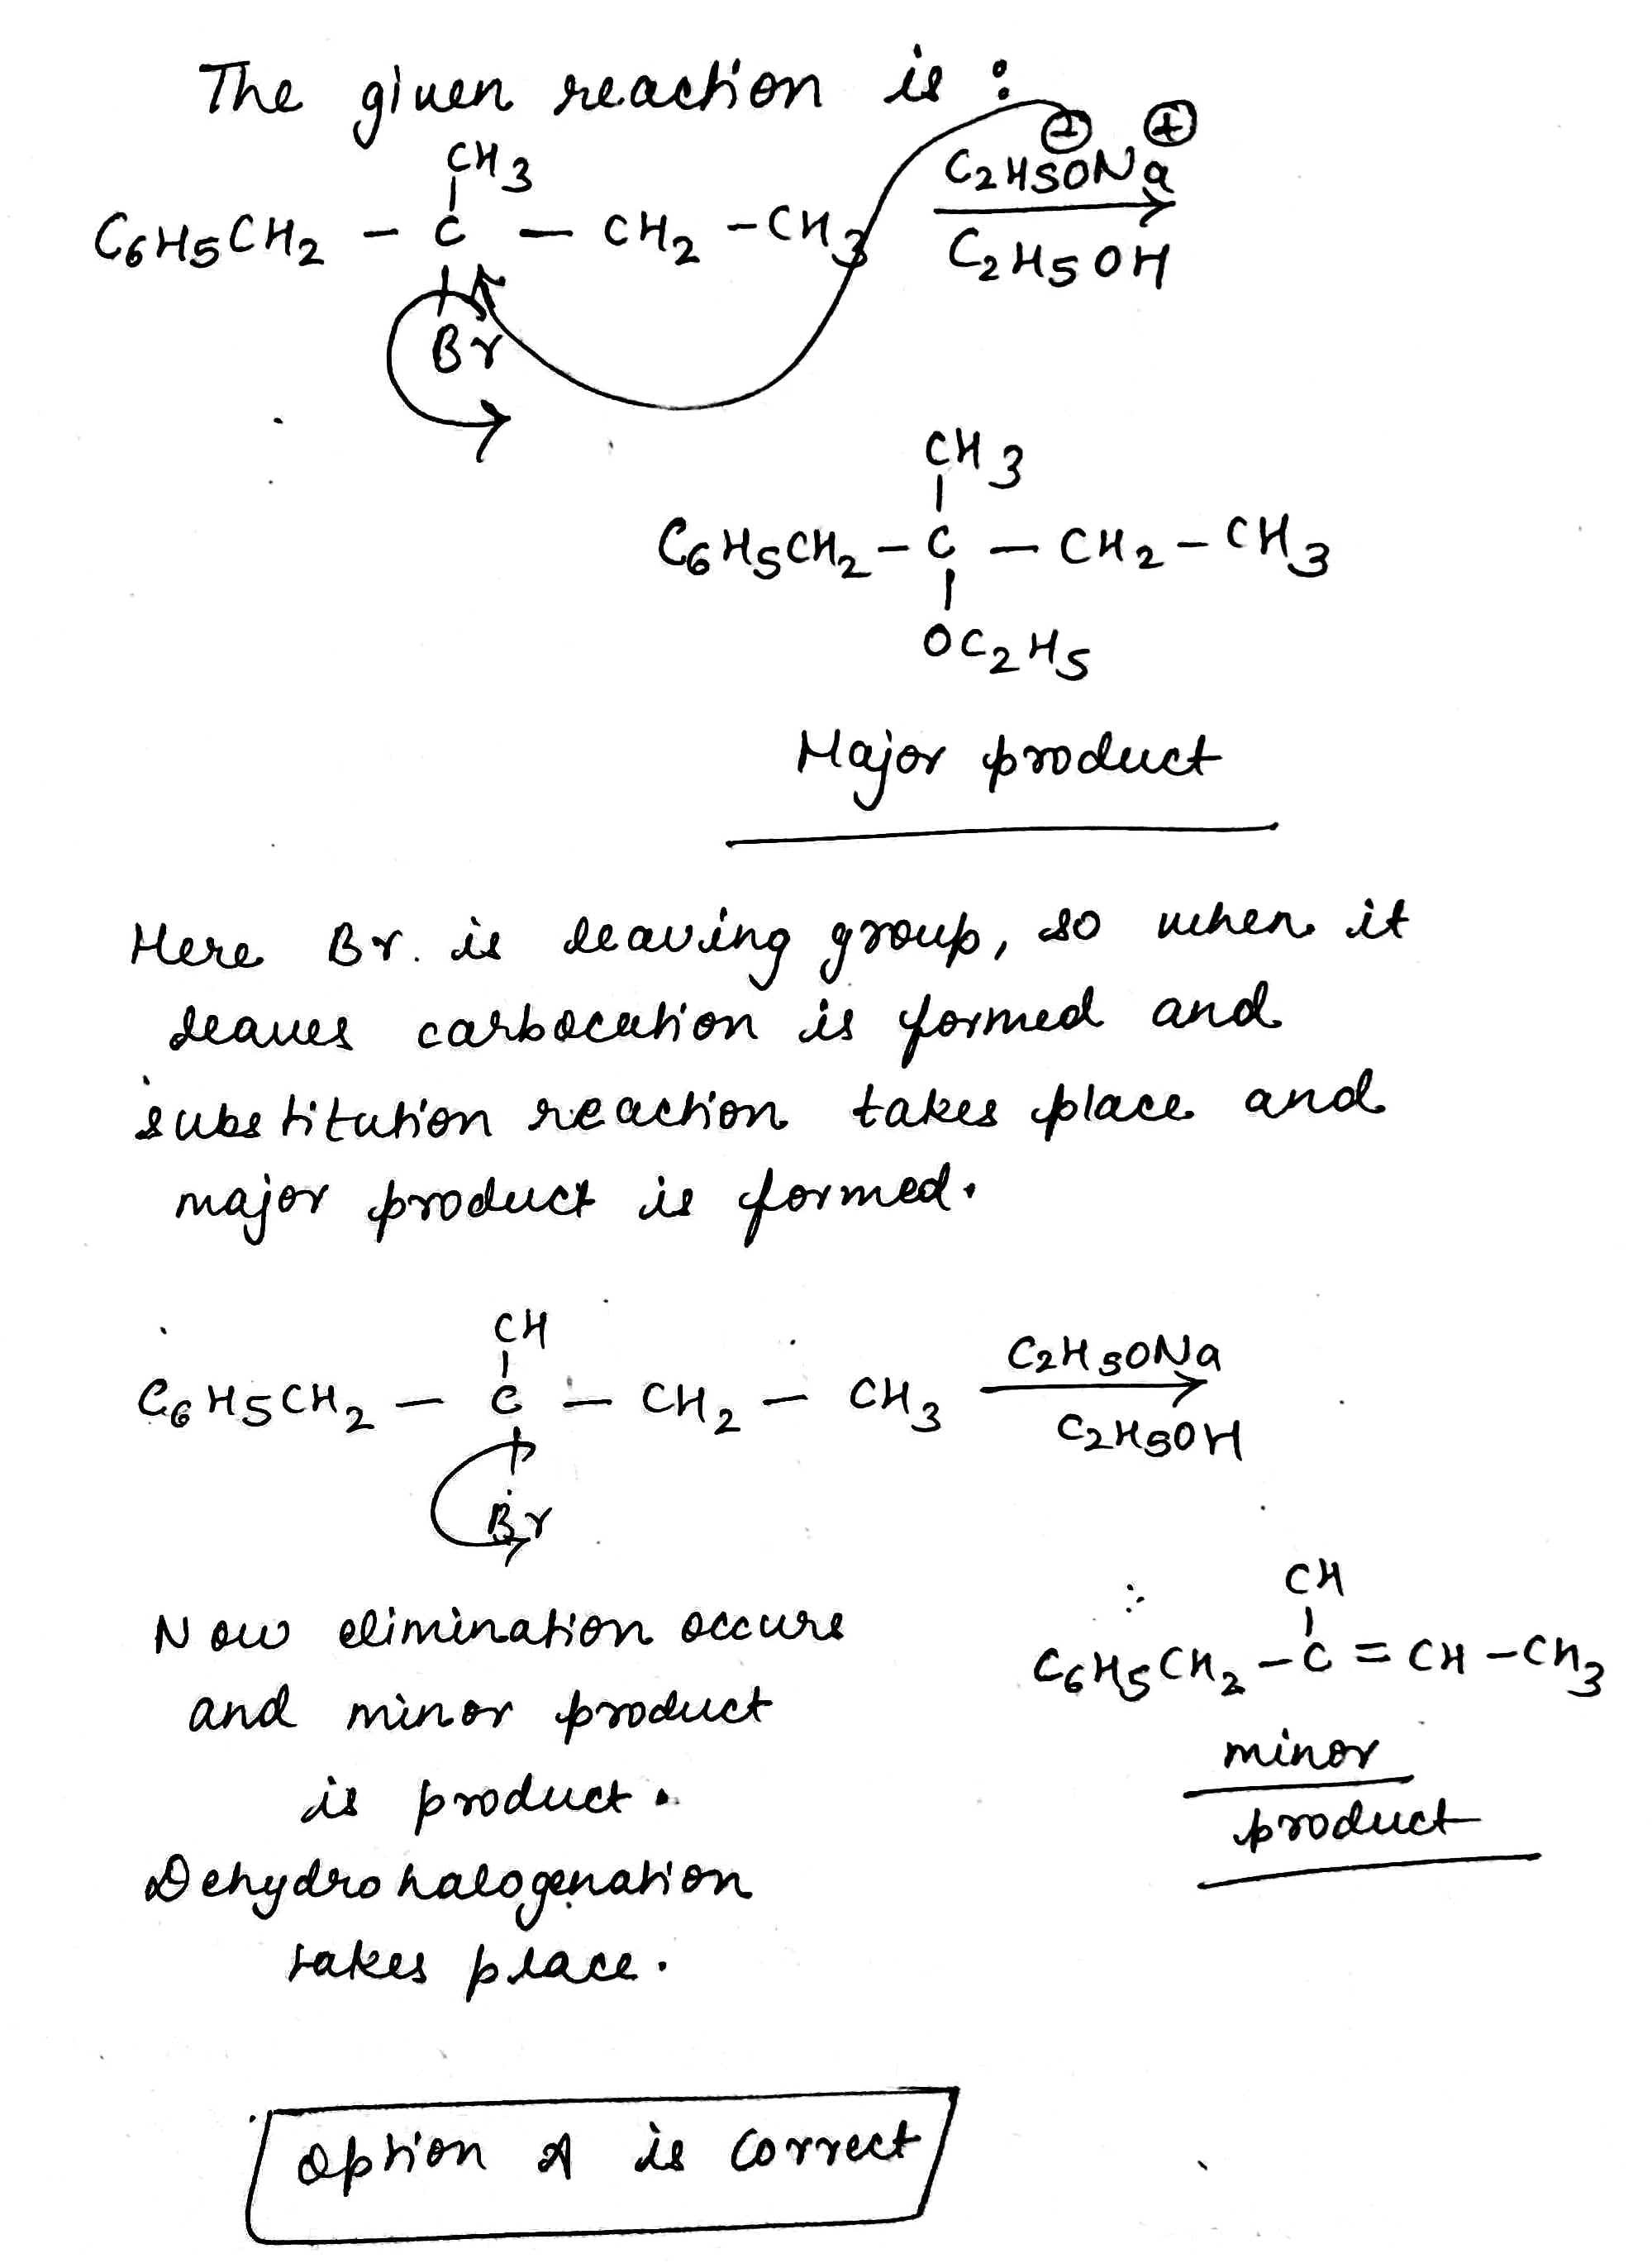 The given reaction is :
CH3
C6H5CH2 - C - CH2 - CH3
Br
⊖ ⊕
C2H5ONa
C2H5OH
CH3
C6H5CH2 - C - CH2 - CH3
OC2H5
Major product
Here Br. is leaving group, so when it
leaves carbocation is formed and
substitution reaction takes place and
major product is formed.
CH
C6H5CH2 - C - CH2 - CH3
Br
C2H5ONa
C2H5OH
Now elimination occurs
and minor product
is product.
Dehydrohalogenation
takes place.
CH
C6H5CH2 - C = CH - CH3
minor
product
Option A is correct